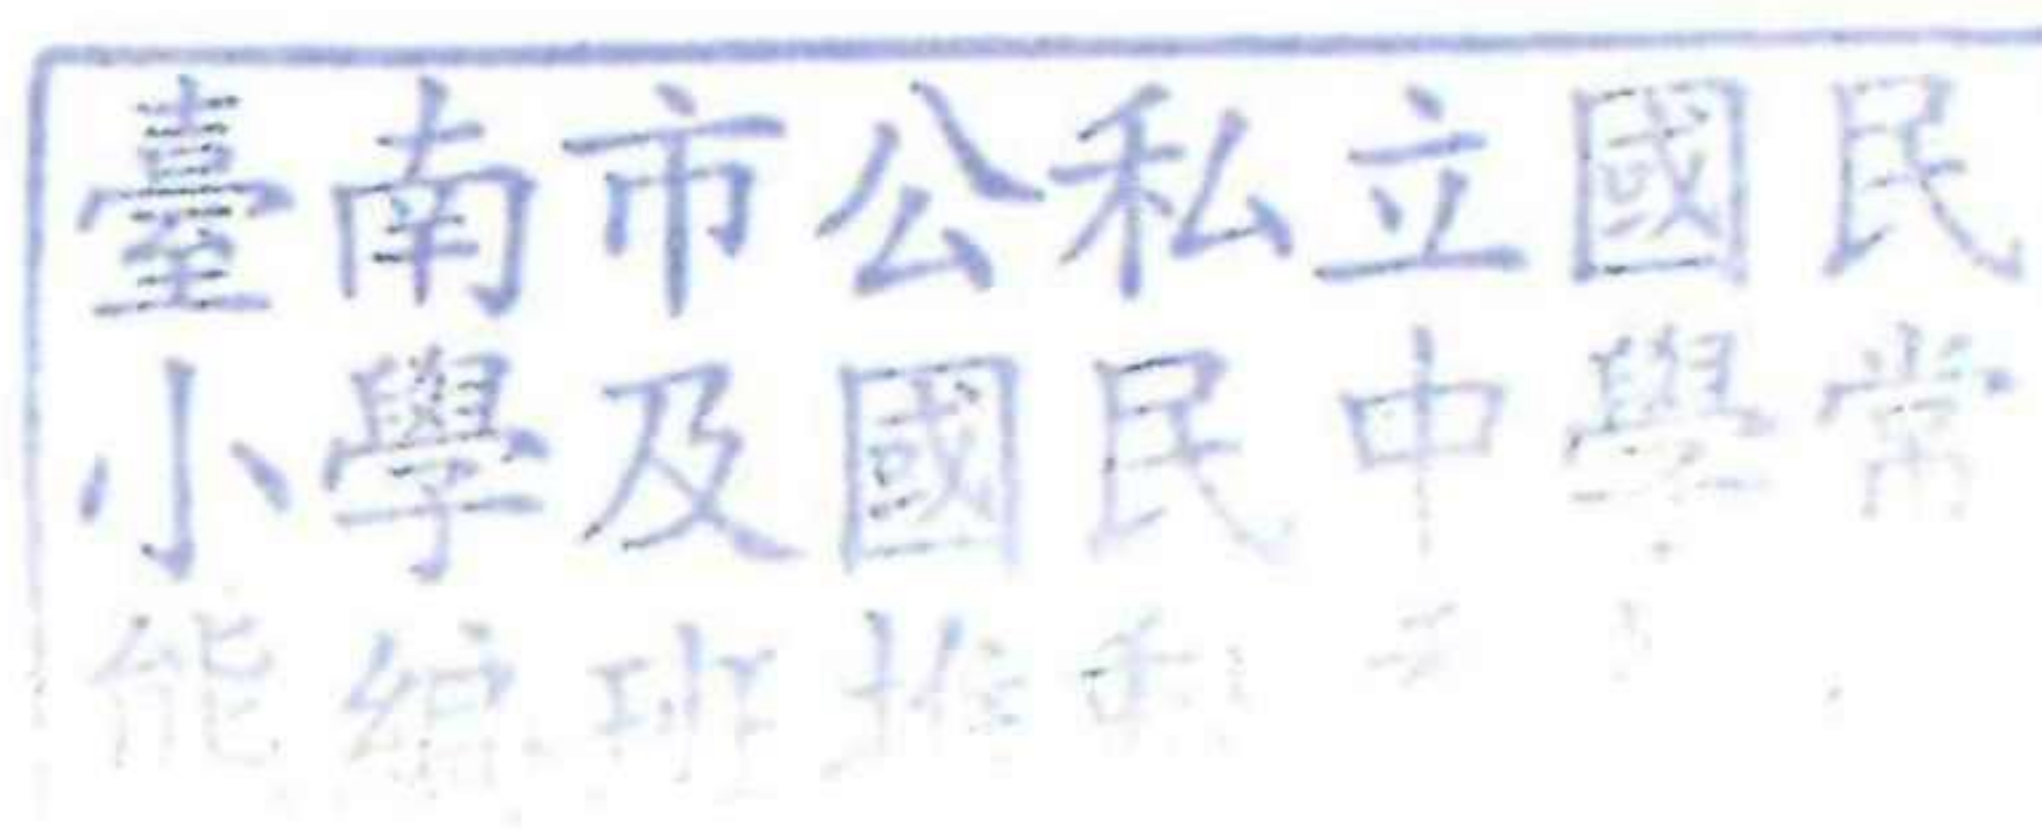 臺南市公私立國民
小學及國民中學常
能編班推動委